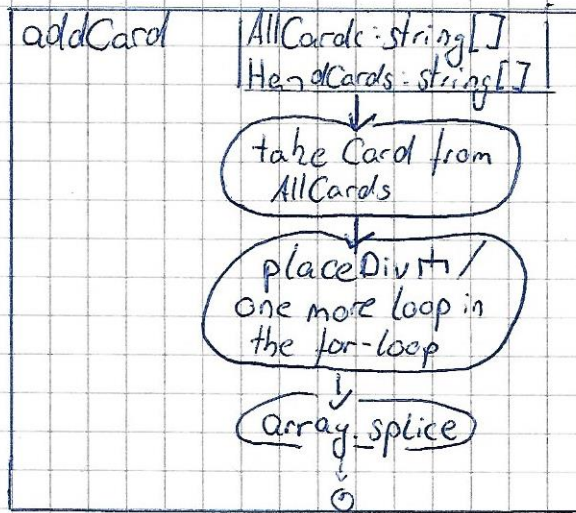 addCard
AllCards: string[]
HandCards: string[]
take Card from
AllCards
placeDiv /
one more loop in
the for-loop
array.splice